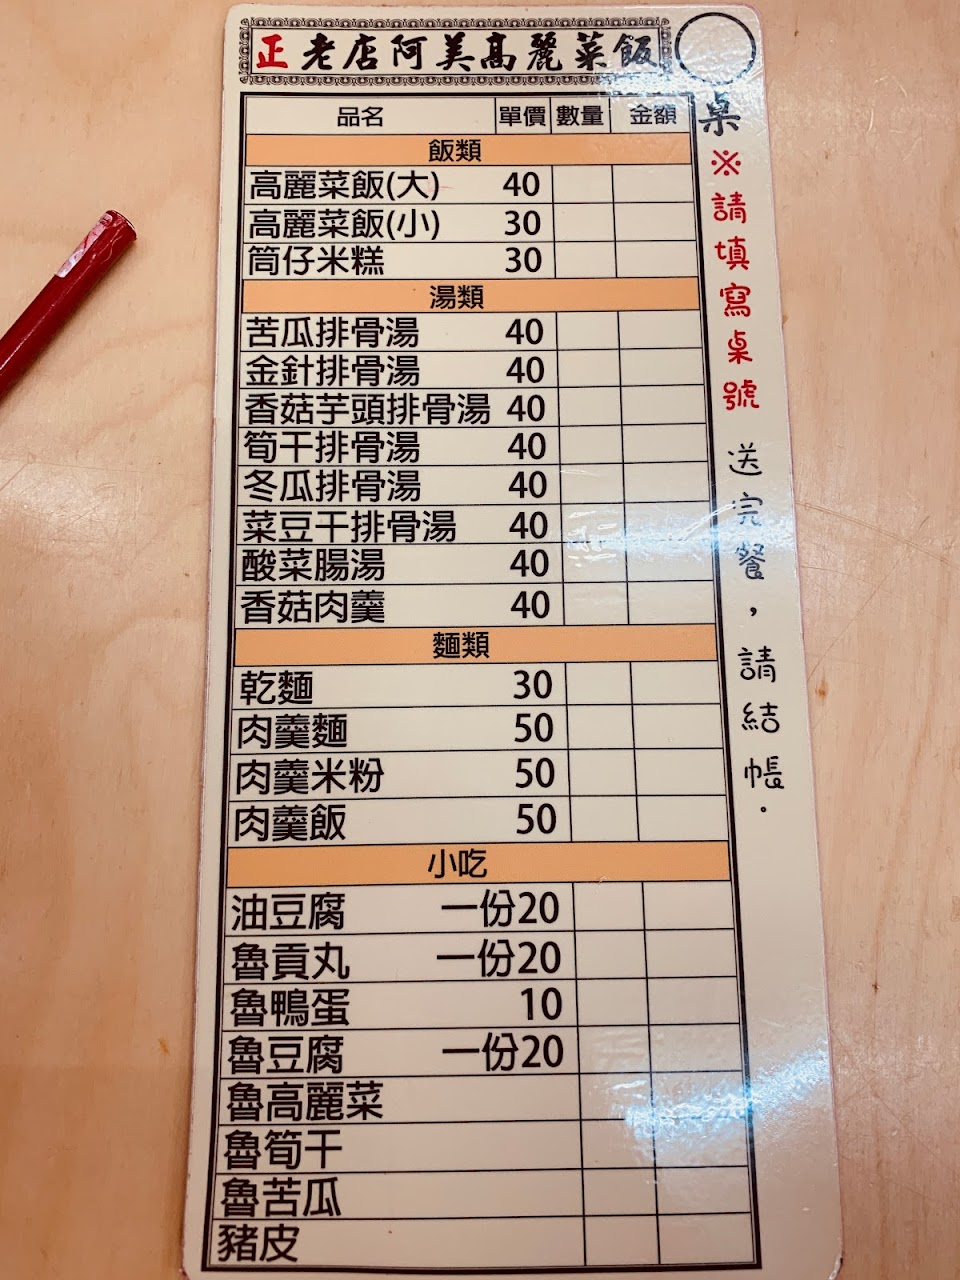 正老店阿美高麗菜飯
品名 單價 數量 金額
飯類
高麗菜飯(大) 40
高麗菜飯(小) 30
筒仔米糕 30
湯類
苦瓜排骨湯 40
金針排骨湯 40
香菇芋頭排骨湯 40
筍干排骨湯 40
冬瓜排骨湯 40
菜豆干排骨湯 40
酸菜腸湯 40
香菇肉羹 40
麵類
乾麵 30
肉羹麵 50
肉羹米粉 50
肉羹飯 50
小吃
油豆腐 一份20
魯貢丸 一份20
魯鴨蛋 10
魯豆腐 一份20
魯高麗菜
魯筍干
魯苦瓜
豬皮
桌
※請填寫桌號 送完餐，請結帳.